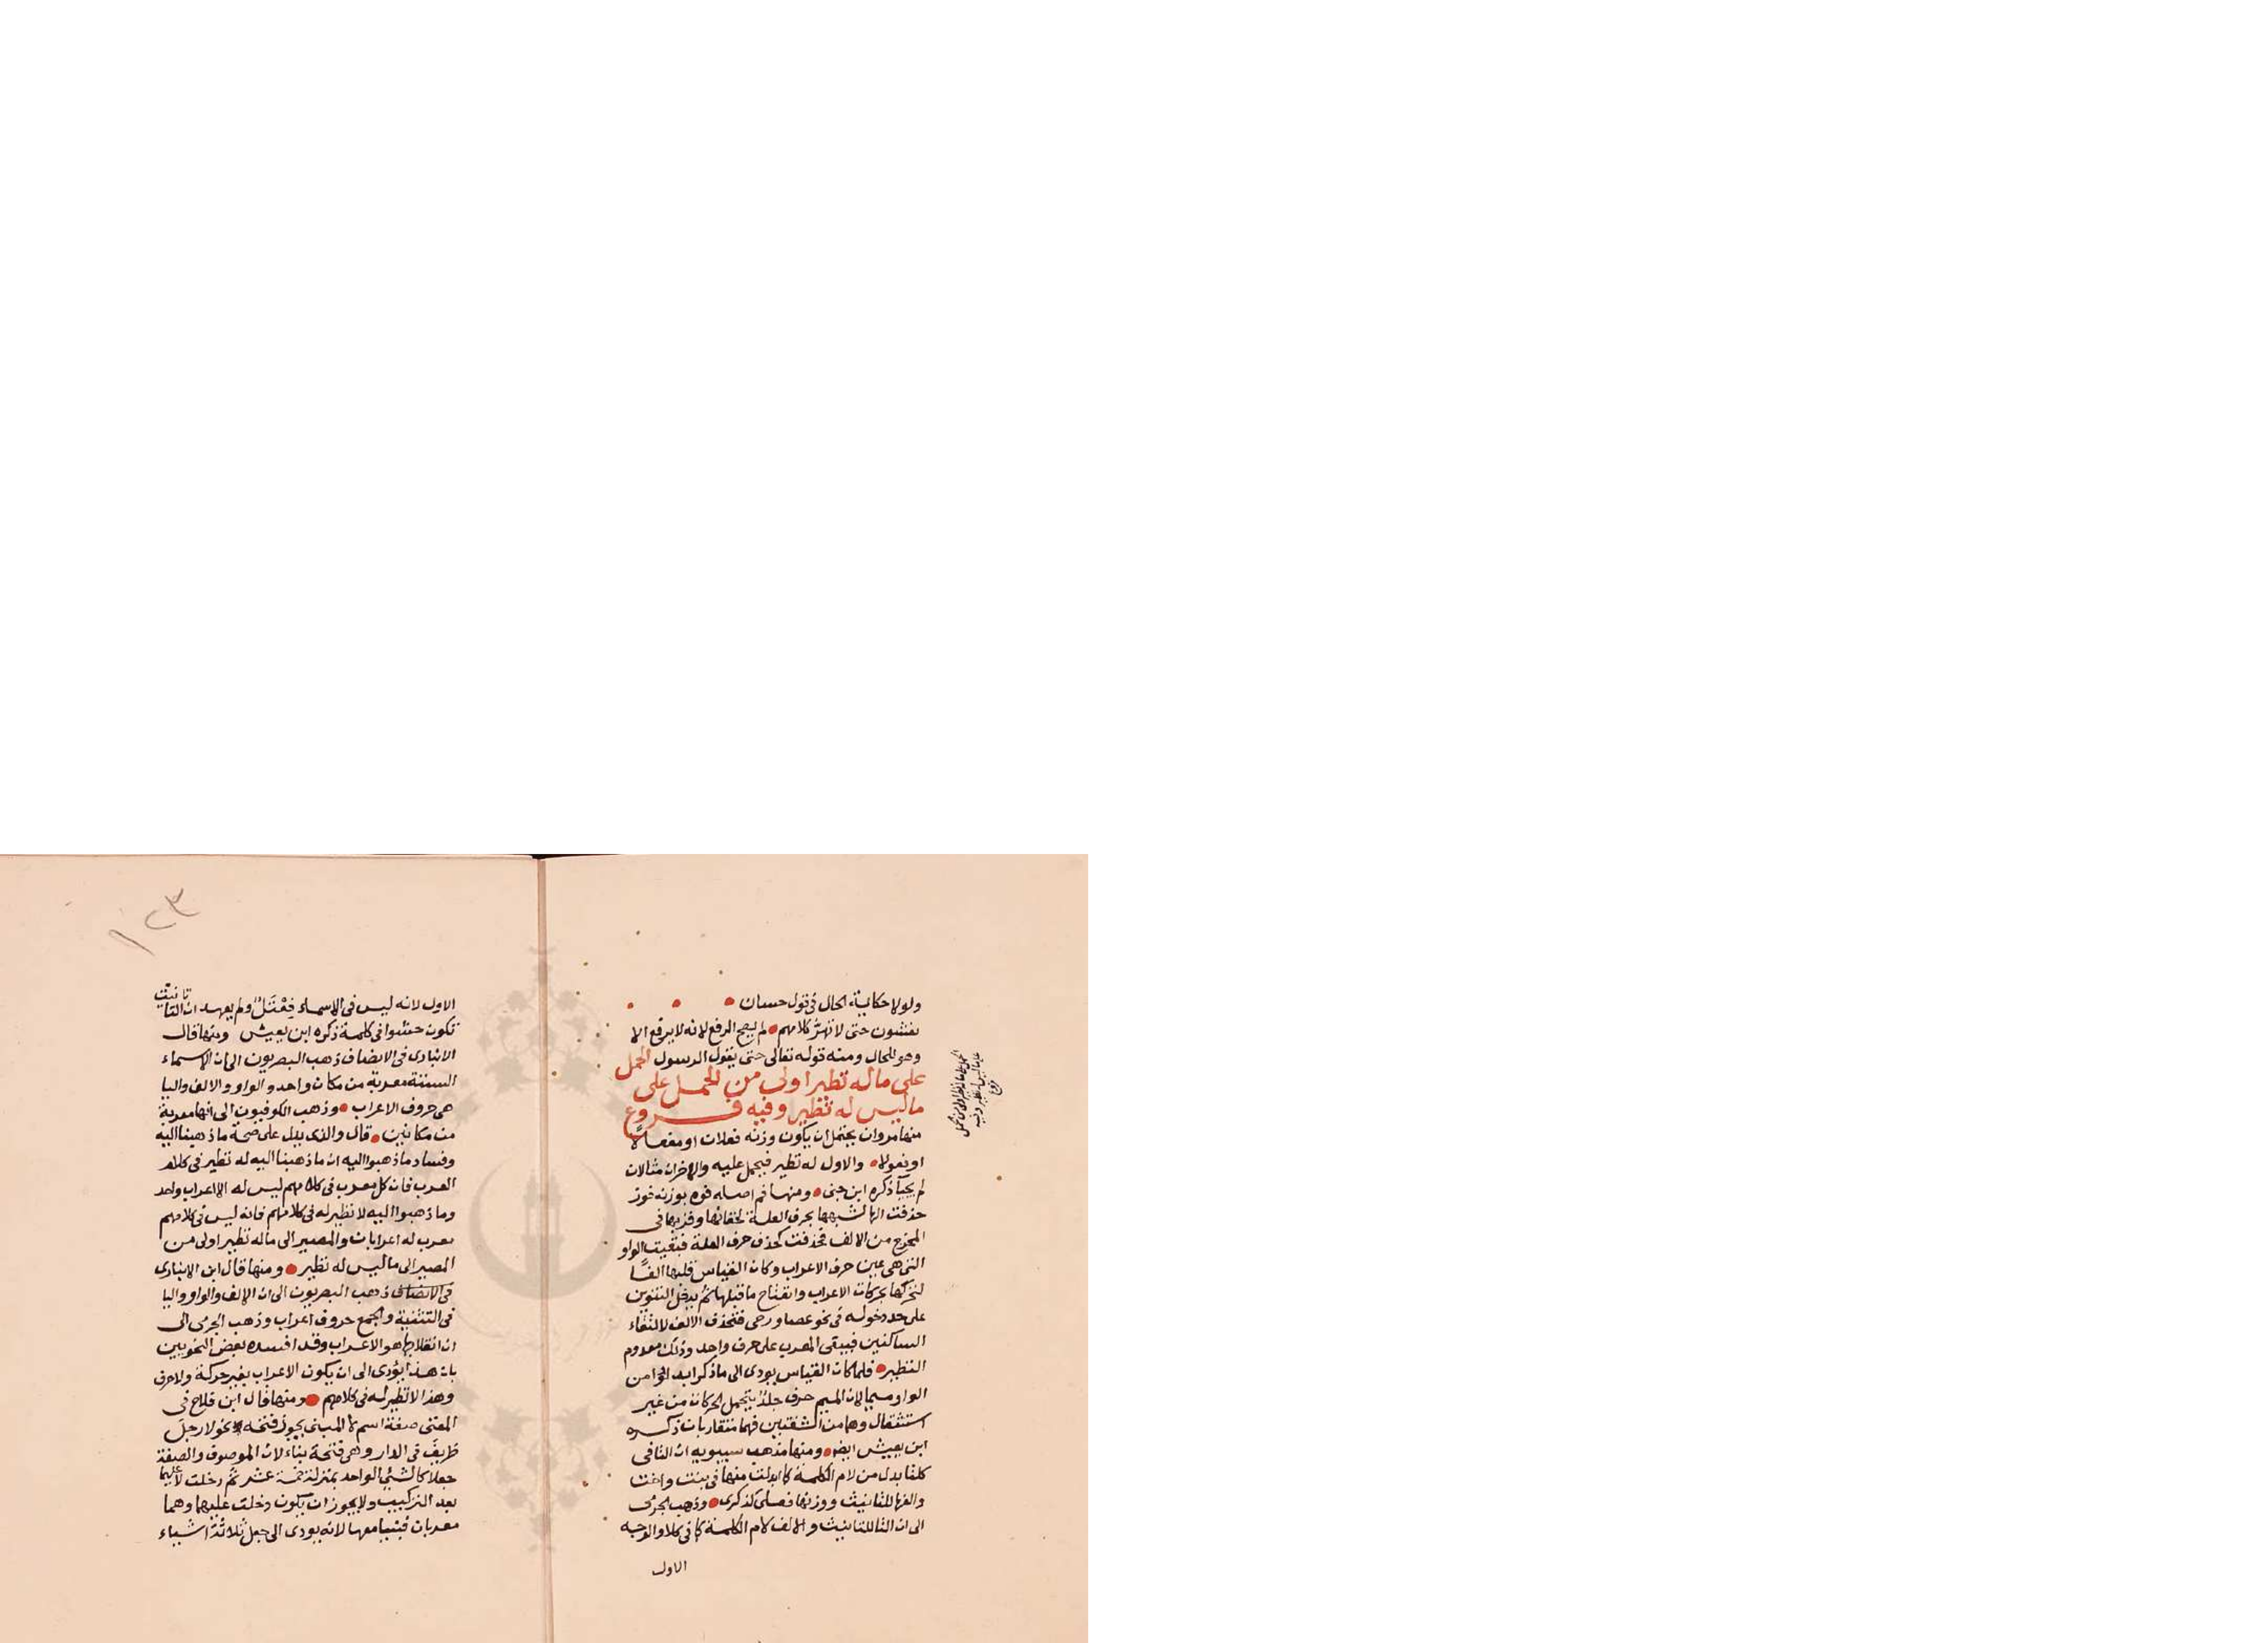 ولولا حكاية الحال فى قول حسان
يغشون حتى لا تهر كلابهم لم يصح الرفع لانه لا يرفع الا
وهو للحال ومنه قوله تعالى حتى يقول الرسول الحمل
على ماله نظير اولى من الحمل على
ماليس له نظير وفيه فروع
منها مروان يحتمل ان يكون وزنه فعلان او مفعالا
او فعوالا والاول له نظير فيحمل عليه والاخران مثالان
لم يجيآ ذكره ابن جنى ومنها فم اصله فوه بوزنه فوز
حذفت الها لشبهها بحرف العلة لخفائها وقربها فى
المخرج من الالف فحذفت كحذف حرف العلة فبقيت الواو
التى هى عين حرف الاعراب وكان القياس قلبها الفا
لتحركها بحركات الاعراب وانفتاح ما قبلها ثم يدخل التنوين
على حد دخوله فى نحو عصا ورحى فتحذف الالف لالتقاء
الساكنين فيبقى المعرب على حرف واحد وذلك معدوم
النظير فلما كان القياس يودى الى ما ذكر ابدلوا من
الواو ميما لان الميم حرف جلد يتحمل الحركات من غير
استثقال وهما من الشفتين فهما متقاربان ذكره
ابن يعيش ايضا ومنها مذهب سيبويه ان التا فى
كلتا بدل من لام الكلمة كما ابدلت منها فى بنت واخت
والفها للتانيث ووزنها فعلى كذكرى وذهب الجرمى
الى ان التا للتانيث والالف لام الكلمة كما فى كلا والوجه
الاول
الحمل على ماله نظير اولى من الحمل
على ماليس له نظير وفيه
فروع
١٢٣
الاول لانه ليس فى الاسماء فعتل ولم يعهد ان تا التانيث
تكون حشوا فى كلمة ذكره ابن يعيش ومنها قال
الانبارى فى الانصاف ذهب البصريون الى ان الاسماء
الستة معربة من مكان واحد والواو والالف واليا
هى حروف الاعراب وذهب الكوفيون الى انها معربة
من مكانين قال والذى يدل على صحة ما ذهبنا اليه
وفساد ما ذهبوا اليه ان ما ذهبنا اليه له نظير فى كلام
العرب فان كل معرب فى كلامهم ليس له الا اعراب واحد
وما ذهبوا اليه لا نظير له فى كلامهم فانه ليس فى كلامهم
معرب له اعرابان والمصير الى ماله نظير اولى من
المصير الى ما ليس له نظير ومنها قال ابن الانبارى
فى الانصاف ذهب البصريون الى ان الالف والواو واليا
فى التثنية والجمع حروف اعراب وذهب الجرمى الى
ان انقلابها هو الاعراب وقد افسده بعض النحويين
بان هذا يؤدى الى ان يكون الاعراب بغير حركة ولا حرف
وهذا لا نظير له فى كلامهم ومنها قال ابن فلاح فى
المغنى صفة اسم لا المبنى يجوز فتحه نحو لا رجل
ظريف فى الدار وهى فتحة بناء لان الموصوف والصفة
جعلا كالشئ الواحد بمنزلة خمسة عشر ثم دخلت لا عليهما
بعد التركيب ولا يجوز ان يكون دخلت عليهما وهما
معربان فبنيا معها لانه يودى الى جعل ثلاثة اشياء